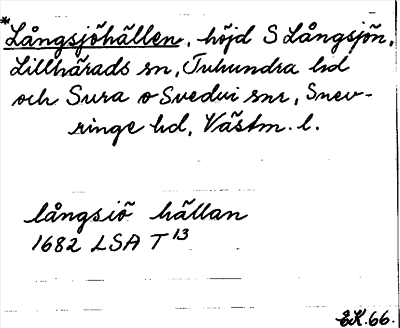 *Långsjöhällen, höjd S Långsjön,
Lillhärads sn, Tuhundra hd
och Sura o Svedvi snr, Snev-
ringe hd, Västm. l.
långsiö hällan
1682 LSA T 13
EK.66.